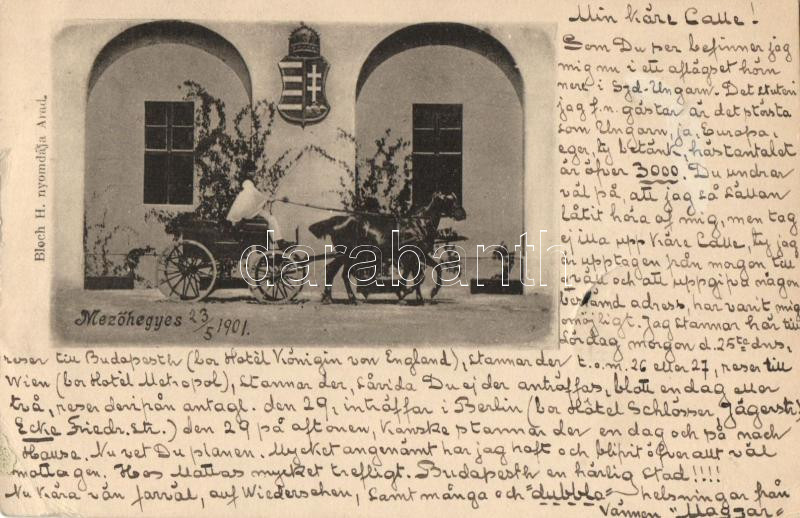 Min käre Calle!
Som Du ser befinner jag
mig nu i ett aflägset hörn
nere i Syd-Ungarn. Det stuteri
jag f.n. gästar är det största
som Ungarn, ja, Europa,
eger, ty betänk, hästantalet
är öfver 3000. Du undrar
väl på, att jag så sällan
låtit höra af mig, men tag
ej illa upp käre Calle, ty jag
är upptagen från morgon till
qväll och att uppgifva någon
bestämd adress, har varit mig
omöjligt. Jag stannar här till
lördag morgon d. 25te dns,
reser till Budapesth (bor Hotel Königin von England), stannar der t.o.m. 26 eller 27, reser till
Wien (bor Hotel Metropol), stannar der, såvida Du ej der anträffas, blott en dag eller
två, reser derifrån antagl. den 29, inträffar i Berlin (bor Hôtel Schlösser, Jägerstr.
Ecke Friedr. str.) den 29 på aftonen, kanske stannar der en dag och på nach
Hause. Nu vet Du planen. Mycket angenämt har jag haft och blifvit öfverallt väl
mottagen. Hos Mattas mycket trefligt. Budapesth en härlig stad!!!!
Nu kära vän farväl, auf Wiedersehen, samt många och "dubbla" helsningar från
Vännen "Magyar"
Mezőhegyes 23/5 1901.
Bloch H. nyomdája Arad.
darabanth.com